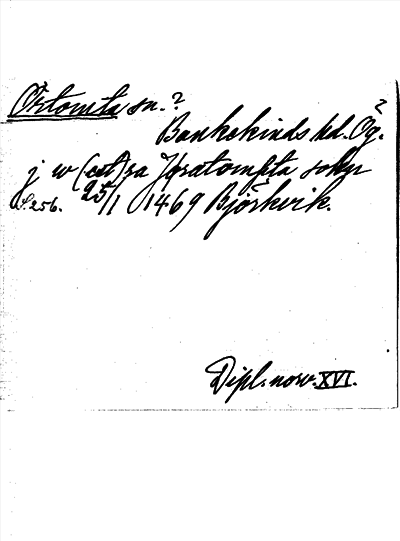 Örtomta sn.?
Bankekinds hd. Ög.?
j w (et)ra Jøratompta sokn
S. 256. 25/1 1469 Björkvik.
Dipl. norv. XVI.